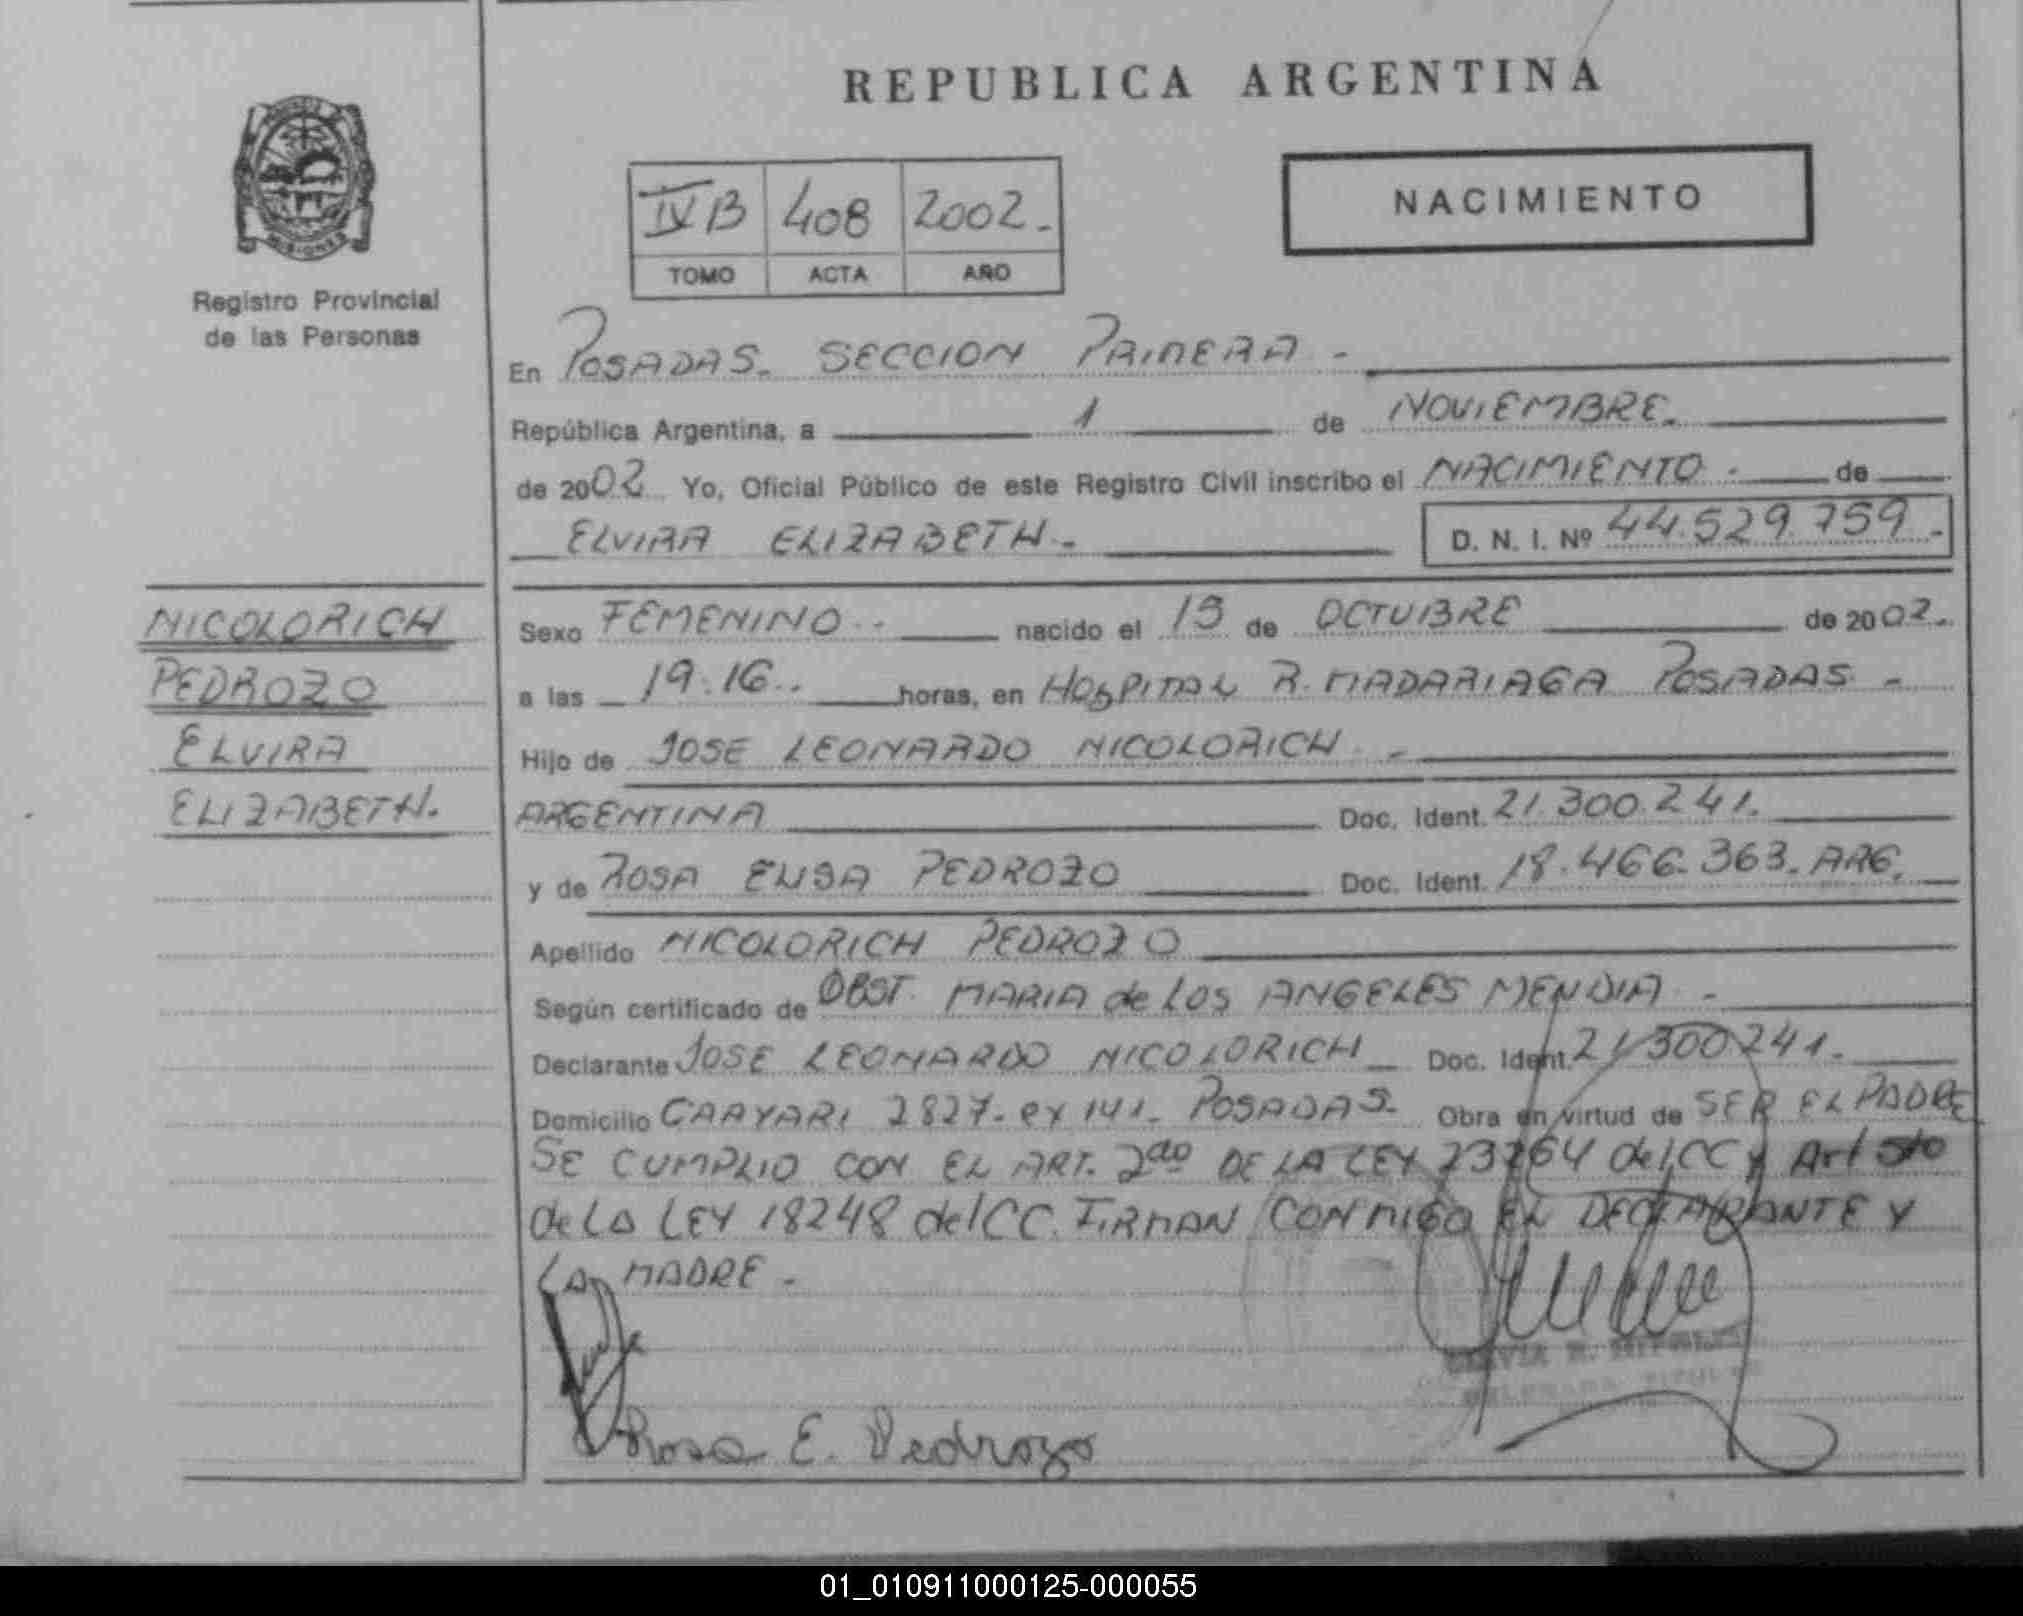 REPUBLICA ARGENTINA
NACIMIENTO
IVB 408 2002.-
TOMO ACTA AÑO
Registro Provincial
de las Personas
En POSADAS. SECCION PRIMERA -
República Argentina, a 1 de NOVIEMBRE.
de 2002 Yo, Oficial Público de este Registro Civil inscribo el NACIMIENTO - de
ELVIRA ELIZABETH.- D. N. I. Nº 44.529.759.-
NICOLORICH
PEDROZO
ELVIRA
ELIZABETH.
Sexo FEMENINO.- nacido el de OCTUBRE de 2002.-
a las 19.16.. horas, en HOSPITAL R. MADARIAGA POSADAS -
Hijo de JOSE LEONARDO NICOLORICH -
ARGENTINA Doc. Ident. 21.300.241.
y de ROSA PEDROZO Doc. Ident. 18.466.363. ARG.
Apellido NICOLORICH PEDROZO
Según certificado de OBST. MARIA de LOS ANGELES MENDIA -
Declarante JOSE LEONARDO NICOLORICH Doc. Ident. 21.300241.
Domicilio CAAYARI 2827- POSADAS- Obra en virtud de SER EL PADRE
SE CUMPLIO CON EL ART. 2do DE LA LEY 23264 del CC y Art 5to
de LA LEY 18248 del CC. FIRMAN CONMIGO EL DECLARANTE Y
LA MADRE -
Rosa E. Pedrozo
01_010911000125-000055